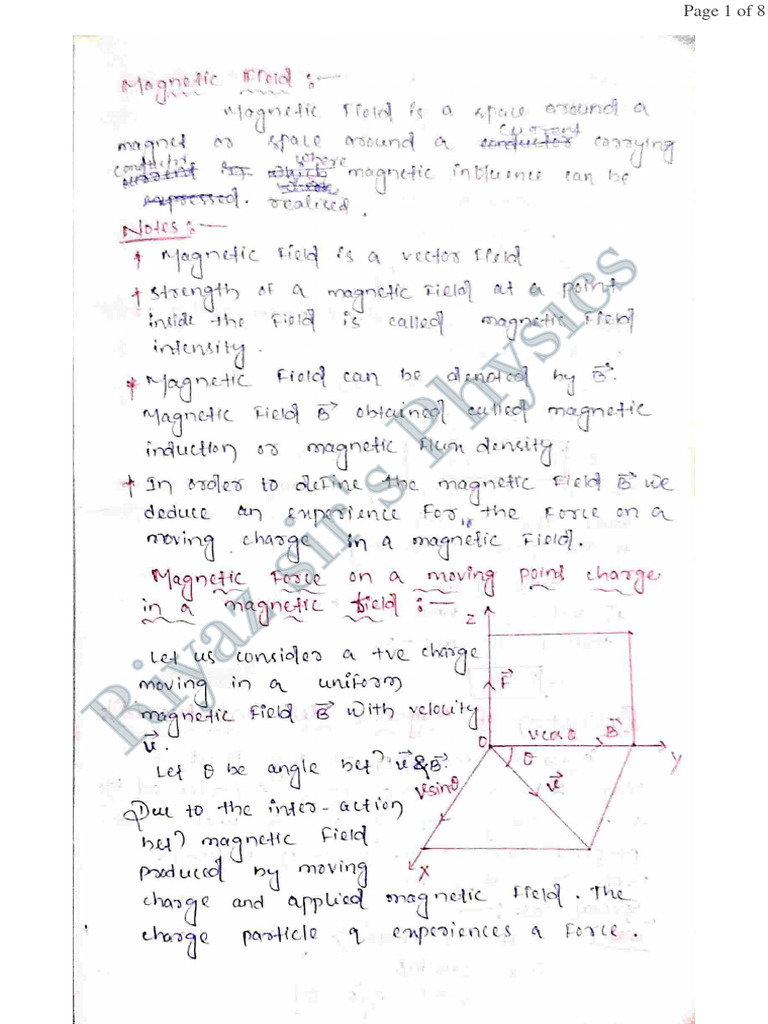 Page 1 of 8
Magnetic Field :—
Magnetic Field is a space around a
magnet or space around a current carrying
conductor where magnetic influence can be
realised.
Notes :—
* Magnetic Field is a vector Field
* Strength of a magnetic Field at a point
inside the Field is called magnetic Field
intensity.
* Magnetic Field can be denoted by B⃗.
Magnetic Field B⃗ obtained called magnetic
induction or magnetic flux density.
* In order to define the magnetic Field B⃗ we
deduce an experience for the Force on a
moving charge in a magnetic Field.
Magnetic Force on a moving point charge
in a magnetic field :—
Let us consider a +ve charge
moving in a uniform
magnetic Field B⃗ with velocity
v⃗.
Let θ be angle betⁿ v⃗ & B⃗.
Due to the inter-action
betⁿ magnetic Field
produced by moving
charge and applied magnetic Field. The
charge particle q experiences a Force.
Z
F⃗
O
v cosθ
B⃗
Y
θ
v⃗
v sinθ
X
Riyaz sir's Physics